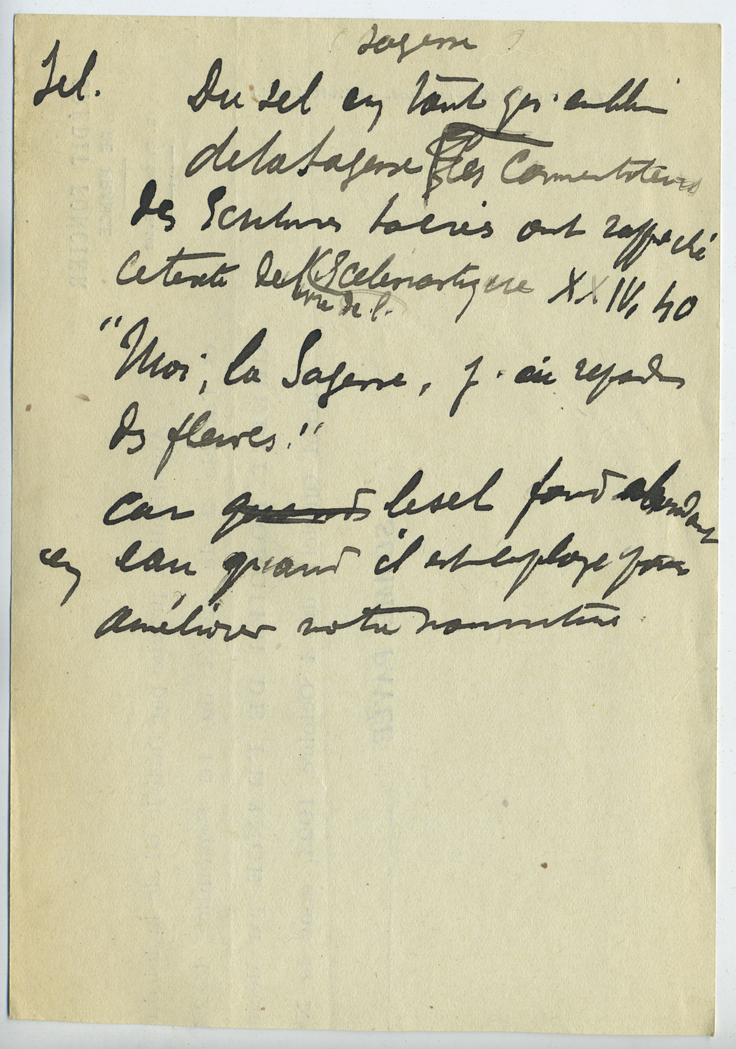 Sagesse
Sel. Du sel en tant qu'emblème
de la Sagesse les Commentateurs
des Ecritures Sacrées ont rapproché
ce texte de l'Ecclésiastique XXIV, 40
livre de l'
"Moi, la Sagesse, j'ai répandu
des fleuves."
car quand le sel fond abondant
en eau quand il est employé pour
améliorer notre nourriture